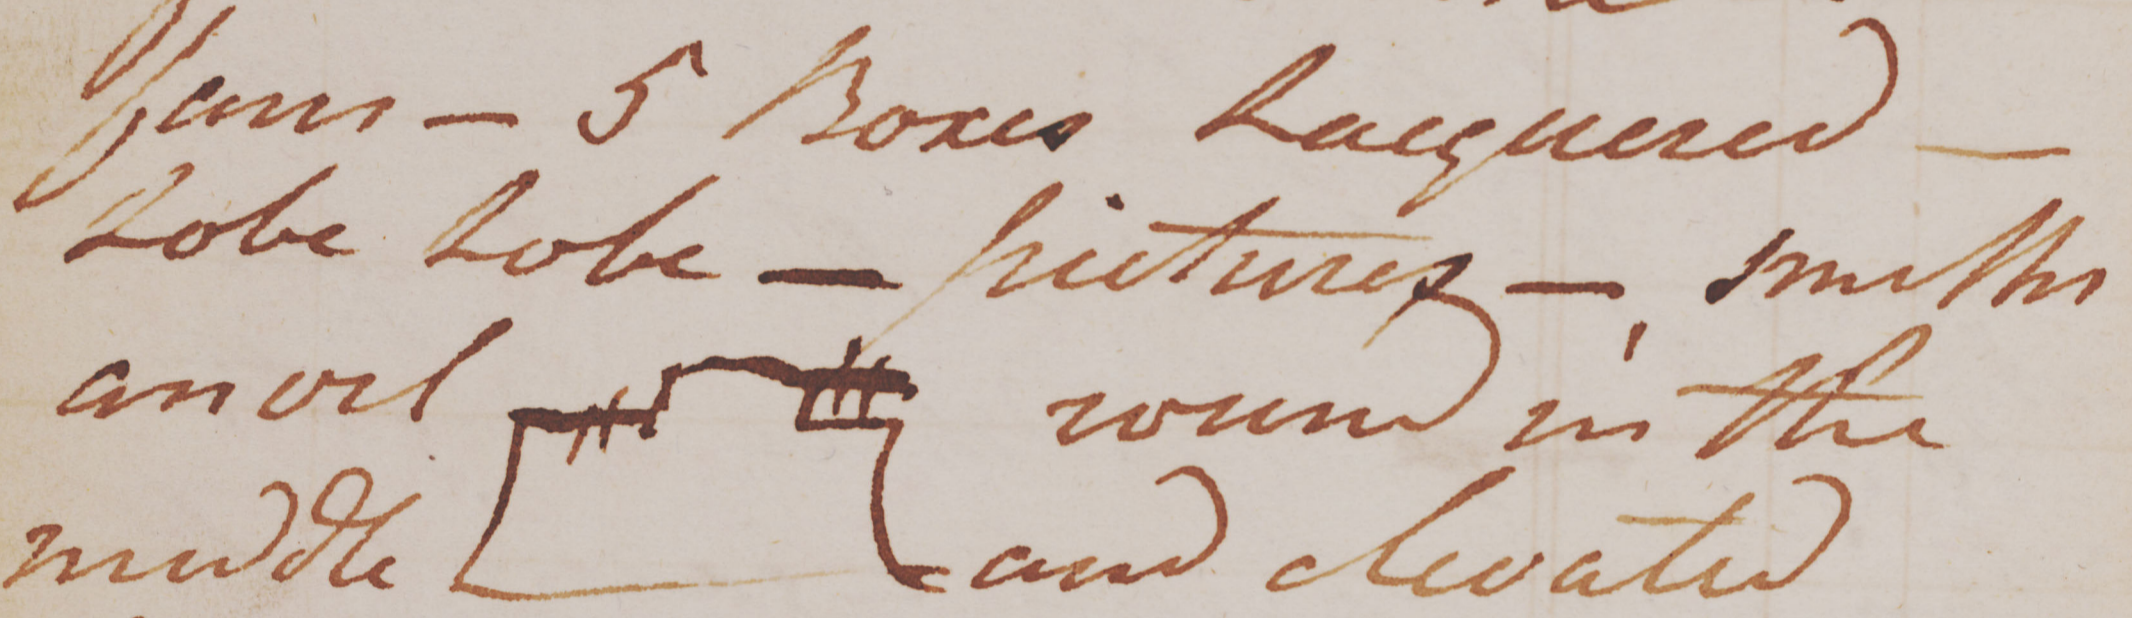 Yams — 5 Boxes Lacquered —
Lobe Lobe — pictures — smiths
anvil round in the
middle and elevated